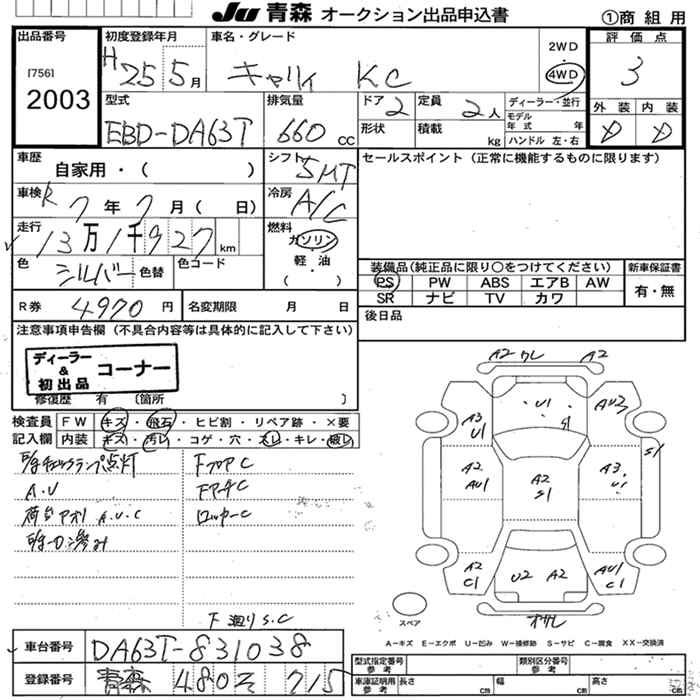 JU 青森 オークション出品申込書 ①商組用
出品番号 初度登録年月 車名・グレード 評価点
[756] H 25 5月 キャリイ KC 2WD 4WD 3
2003
型式 排気量 ドア 2 定員 2人 ディーラー・並行 外装 内装
EBD-DA63T 660cc 形状 積載 kg モデル年式 年 ハンドル 左・右 D D
車歴 自家用・( ) シフト 5MT セールスポイント (正常に機能するものに限ります)
車検 R 7年 7月 ( 日) 冷房 A/C
走行 13万1千927km 燃料 ガソリン 軽・油 ( )
色 シルバー 色替 色コード 装備品(純正品に限り○をつけてください) 新車保証書
PS PW ABS エアB AW 有・無
SR ナビ TV カワ
R券 4970円 名変期限 月 日 後日品
注意事項申告欄 (不具合内容等は具体的に記入して下さい)
ディーラー & 初出品 コーナー
修復歴 有 〔箇所 〕
検査員 FW キズ・飛石・ヒビ割・リペア跡・×要
記入欄 内装 キズ・汚レ・コゲ・穴・スレ・キレ・破レ
チェックランプ点灯 FフロアC
A.U
荷台アオリ A.U.C ロッカーC
F廻りS.C
A2 ワレ A2
U1 S1
A3 U1
AU3
S1
A2 AU1
A2 S1
A3 U1
A2 C1
U2 A2
AU1 C1
スペア
A-キズ E-エクボ U-凹み W-補修跡 S-サビ C-腐食 XX-交換済
車台番号 DA63T-831038 型式指定番号 参考 類別区分番号 参考
登録番号 青森 480 そ 715 車庫証明用 参考 長さ cm 幅 cm 高さ cm